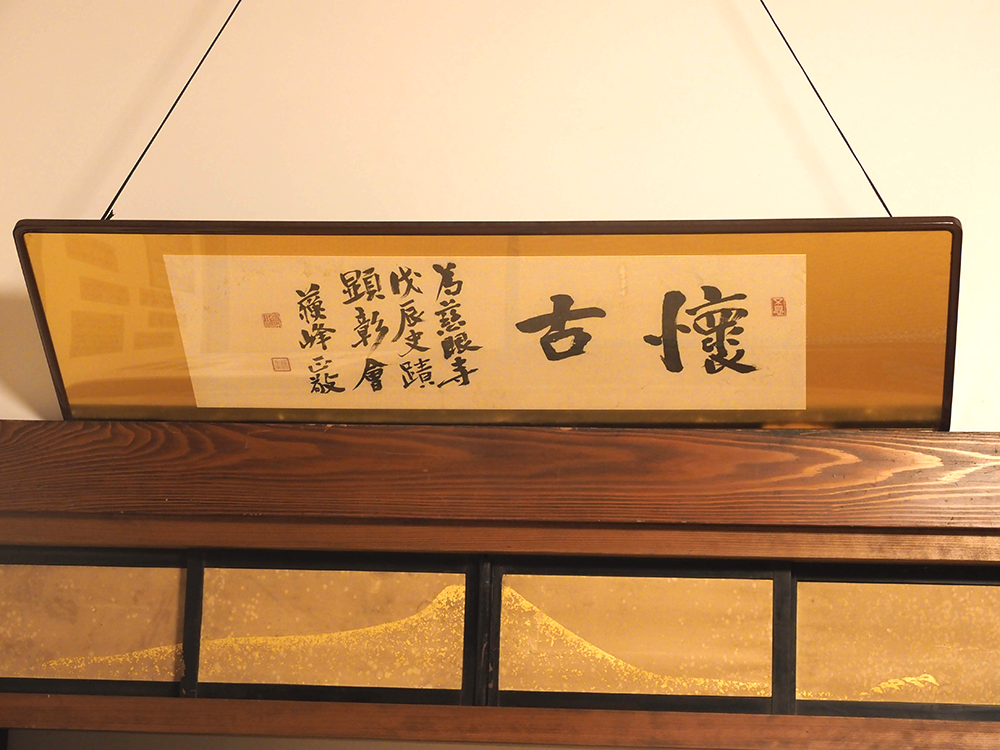 懷古
為慈眼寺
戊辰史蹟
顕彰會
蘇峰正敬